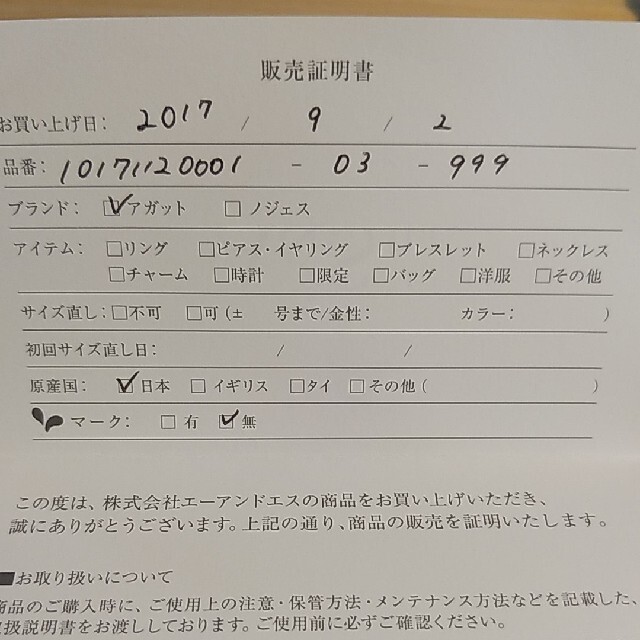 販売証明書
お買い上げ日: 2017 / 9 / 2
品番: 10171120001 - 03 - 999
ブランド: ☑アガット □ノジェス
アイテム: □リング □ピアス・イヤリング □ブレスレット □ネックレス
□チャーム □時計 □限定 □バッグ □洋服 □その他
サイズ直し: □不可 □可 (± 号まで/金性: カラー: )
初回サイズ直し日: / /
原産国: ☑日本 □イギリス □タイ □その他 ( )
マーク: □有 ☑無
この度は、株式会社エーアンドエスの商品をお買い上げいただき、
誠にありがとうございます。上記の通り、商品の販売を証明いたします。
■お取り扱いについて
商品のご購入時に、ご使用上の注意・保管方法・メンテナンス方法などを記載した、
取扱説明書をお渡ししております。ご使用前に必ずご確認ください。